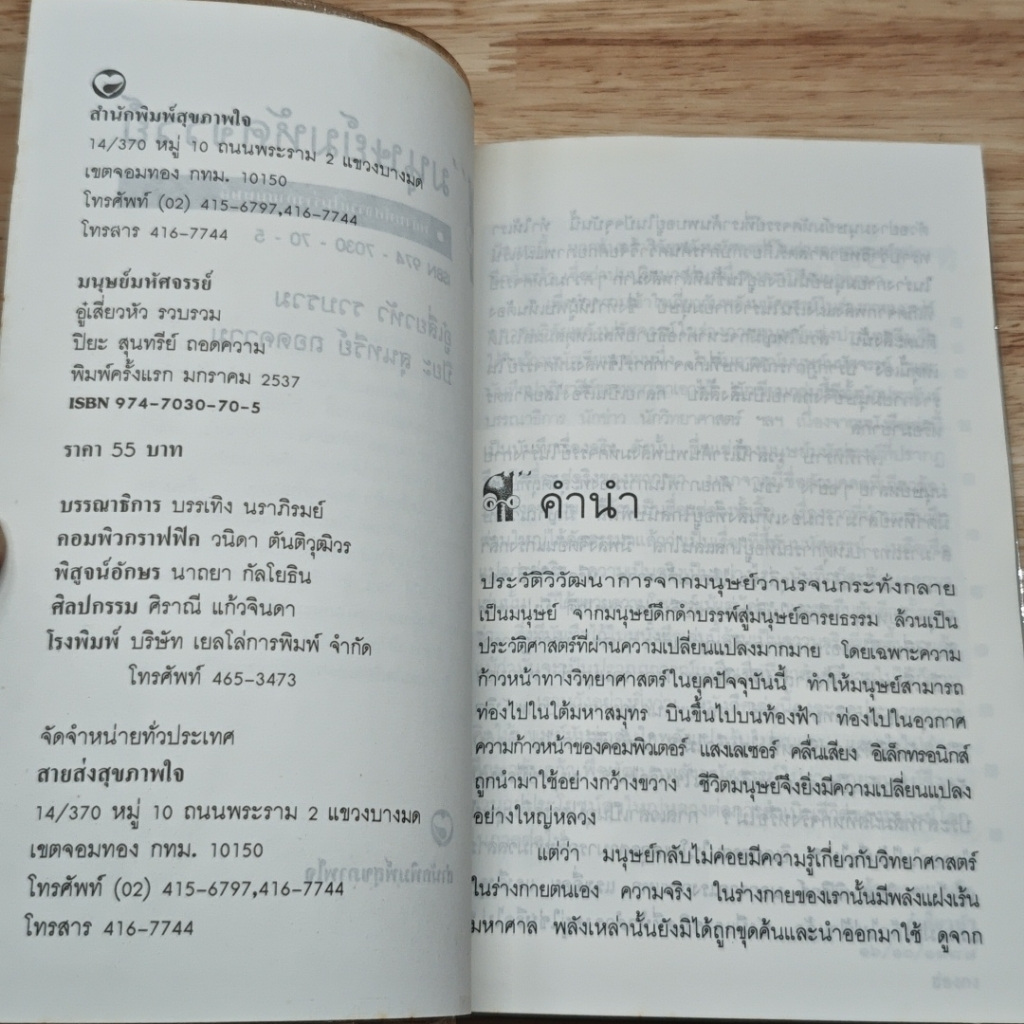 สำนักพิมพ์สุขภาพใจ
14/370 หมู่ 10 ถนนพระราม 2 แขวงบางมด
เขตจอมทอง กทม. 10150
โทรศัพท์ (02) 415-6797,416-7744
โทรสาร 416-7744
มนุษย์มหัศจรรย์
อู๋เสี่ยวหัว รวบรวม
ปิยะ สุนทรีย์ ถอดความ
พิมพ์ครั้งแรก มกราคม 2537
ISBN 974-7030-70-5
ราคา 55 บาท
บรรณาธิการ บรรเทิง นราภิรมย์
คอมพิวกราฟฟิค วนิดา ตันติวุฒิวร
พิสูจน์อักษร นาถยา กัลโยธิน
ศิลปกรรม ศิราณี แก้วจินดา
โรงพิมพ์ บริษัท เยลโล่การพิมพ์ จำกัด
โทรศัพท์ 465-3473
จัดจำหน่ายทั่วประเทศ
สายส่งสุขภาพใจ
14/370 หมู่ 10 ถนนพระราม 2 แขวงบางมด
เขตจอมทอง กทม. 10150
โทรศัพท์ (02) 415-6797,416-7744
โทรสาร 416-7744
คำนำ
ประวัติวิวัฒนาการจากมนุษย์วานรจนกระทั่งกลาย
เป็นมนุษย์ จากมนุษย์ดึกดำบรรพ์สู่มนุษย์อารยธรรม ล้วนเป็น
ประวัติศาสตร์ที่ผ่านความเปลี่ยนแปลงมากมาย โดยเฉพาะความ
ก้าวหน้าทางวิทยาศาสตร์ในยุคปัจจุบันนี้ ทำให้มนุษย์สามารถ
ท่องไปในใต้มหาสมุทร บินขึ้นไปบนท้องฟ้า ท่องไปในอวกาศ
ความก้าวหน้าของคอมพิวเตอร์ แสงเลเซอร์ คลื่นเสียง อิเล็กทรอนิกส์
ถูกนำมาใช้อย่างกว้างขวาง ชีวิตมนุษย์จึงยิ่งมีความเปลี่ยนแปลง
อย่างใหญ่หลวง
แต่ว่า มนุษย์กลับไม่ค่อยมีความรู้เกี่ยวกับวิทยาศาสตร์
ในร่างกายตนเอง ความจริง ในร่างกายของเรานั้นมีพลังแฝงเร้น
มหาศาล พลังเหล่านั้นยังมิได้ถูกขุดค้นและนำออกมาใช้ ดูจาก